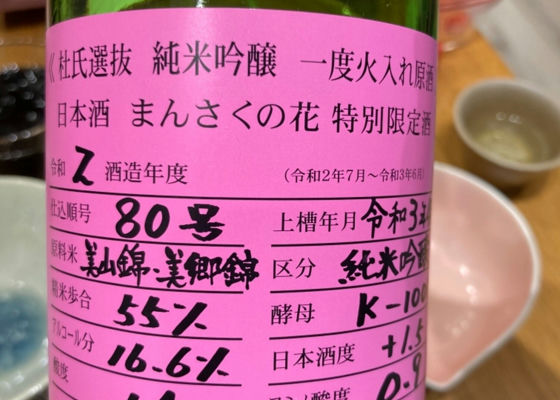 《杜氏選抜 純米吟醸 一度火入れ原酒
日本酒 まんさくの花 特別限定酒
令和 2 酒造年度 (令和2年7月～令和3年6月)
仕込順号 80号 上槽年月 令和3年
原料米 美山錦・美郷錦 区分 純米吟醸
精米歩合 55% 酵母 K-100
アルコール分 16.6% 日本酒度 +1.5
酸度 アミノ酸度 0.9